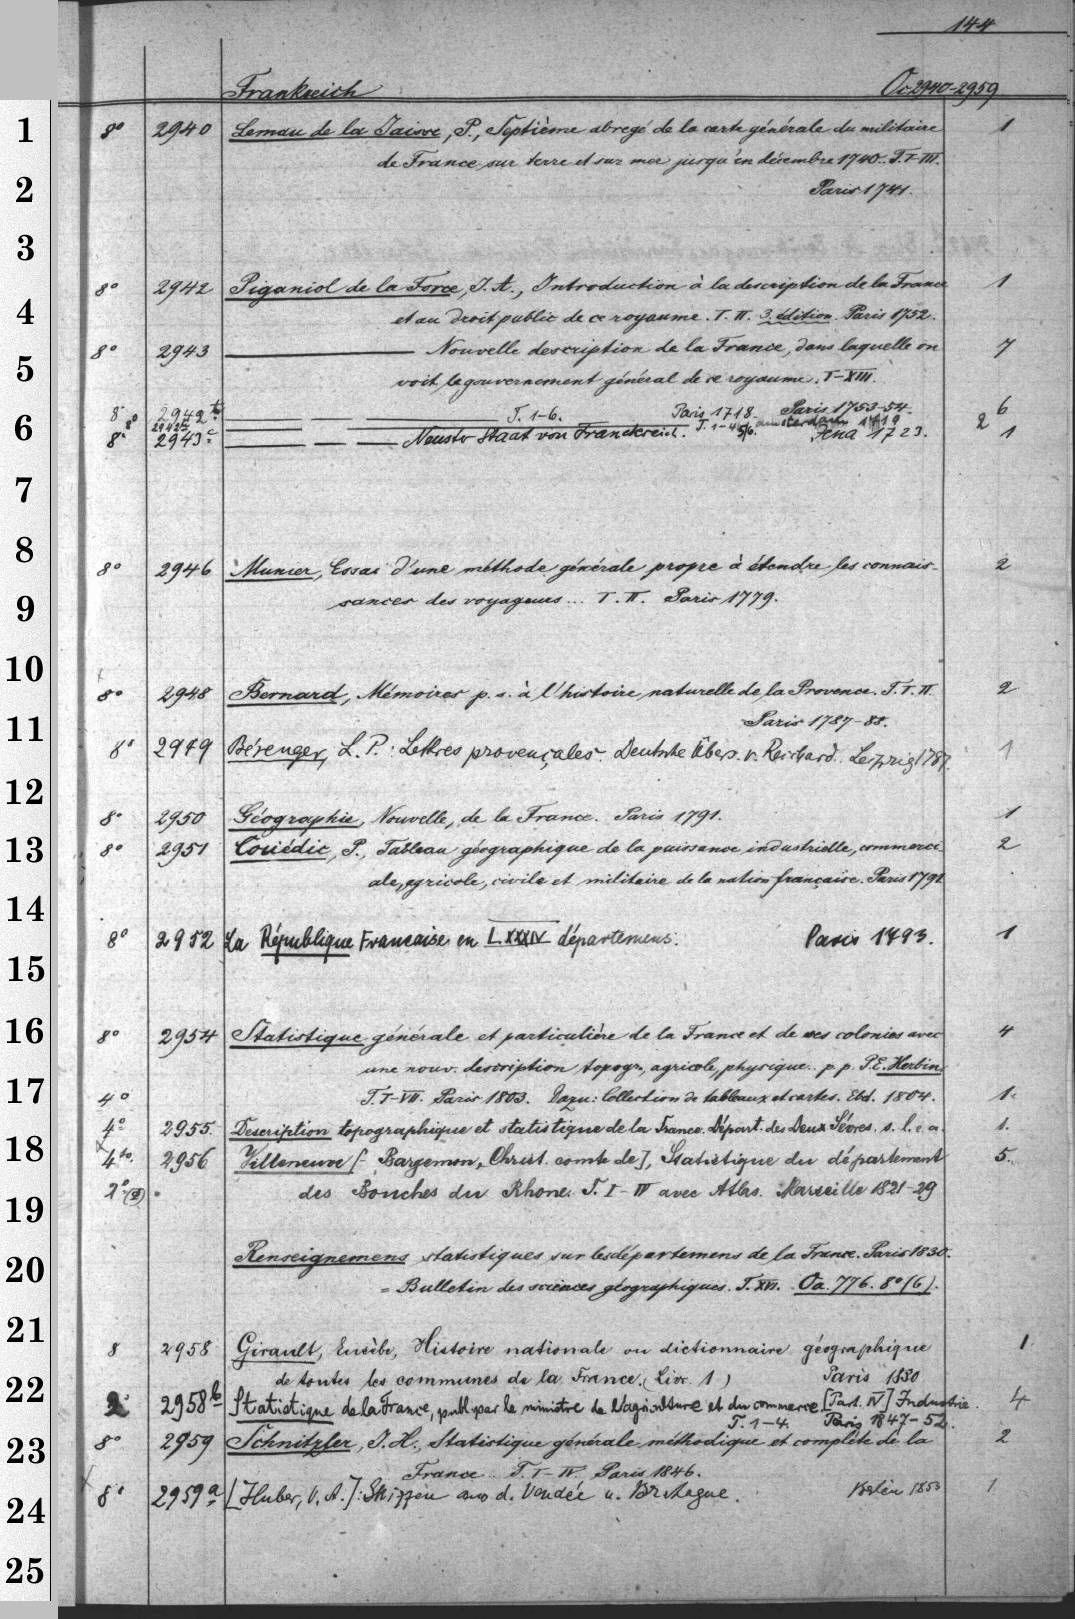 144
Frankreich Oc 2940-2959
8° 2940 Lemau de la Jaisse, P., Septième abregé de la carte générale du militaire 1
de France sur terre et sur mer jusqu'en décembre 1740. T. I-III.
Paris 1741.
8° 2942 Piganiol de la Force, J. A., Introduction à la description de la France 1
et au droit public de ce royaume. T. II. 3. édition. Paris 1752.
8° 2943 Nouvelle description de la France, dans laquelle on 7
voit le gouvernement général de ce royaume. T-XIII.
Paris 1753-54.
8° T. 1-6. Paris 1718. 6
8° T. 1-4 5/6. Amsterdam 1719 2
8° 2943c Neuster Staat von Franckreich. Jena 1723. 1
8° 2946 Munier, Essai d'une méthode générale propre à étendre les connais- 2
sances des voyageurs... T. II. Paris 1779.
8° 2948 Bernard, Mémoires p. s. à l'histoire naturelle de la Provence. T. I. II. 2
Paris 1787-88.
8° 2949 Bérenger, L. P.: Lettres provençales. Deutsche Übers. v. Reichard. Leipzig 1787. 1
8° 2950 Géographie, Nouvelle, de la France. Paris 1791. 1
8° 2951 Couédic, P., Tableau géographique de la puissance industrielle, commerci- 2
ale, agricole, civile et militaire de la nation française. Paris 1791
8° 2952 La République Francaise en LXXXIV départemens. Paris 1793. 1
8° 2954 Statistique générale et particulière de la France et de ses colonies avec 4
une nouv. description topogr., agricole, physique.. p. p. P. E. Herbin
4° T. I-VII. Paris 1803. Dazu: Collection de tableaux et cartes. Ebd. 1804. 1.
4° 2955. Description topographique et statistique de la France. Départ. des Deux Sévres. s. l. e. a. 1.
4to. 2956 Villeneuve [- Bargemon, Christ. comte de], Statistique du département 5.
2° (2) des Bouches du Rhone. T. I-IV avec Atlas. Marseille 1821-29
Renseignemens statistiques sur les départemens de la France. Paris 1830.
= Bulletin des sciences géographiques. T. XVI. Oa. 776. 8° (6).
8 2958 Girault, Eusèbe, Histoire nationale ou dictionnaire géographique 1.
de toutes les communes de la France. (Livr. 1) Paris 1830
2° 2958b Statistique de la France, publ. par le ministre de l'agriculture et du commerce [Part. IV] Industrie. 4
T. 1-4. Paris 1847-52.
8° 2959 Schnitzler, J. H., Statistique générale méthodique et complète de la 2
France.. T. I-IV. Paris 1846.
8° 2959a [Huber, V. A.]: Skizzen aus d. Vendée u. Bretagne. Berlin 1853 1
1
2
3
4
5
6
7
8
9
10
11
12
13
14
15
16
17
18
19
20
21
22
23
24
25